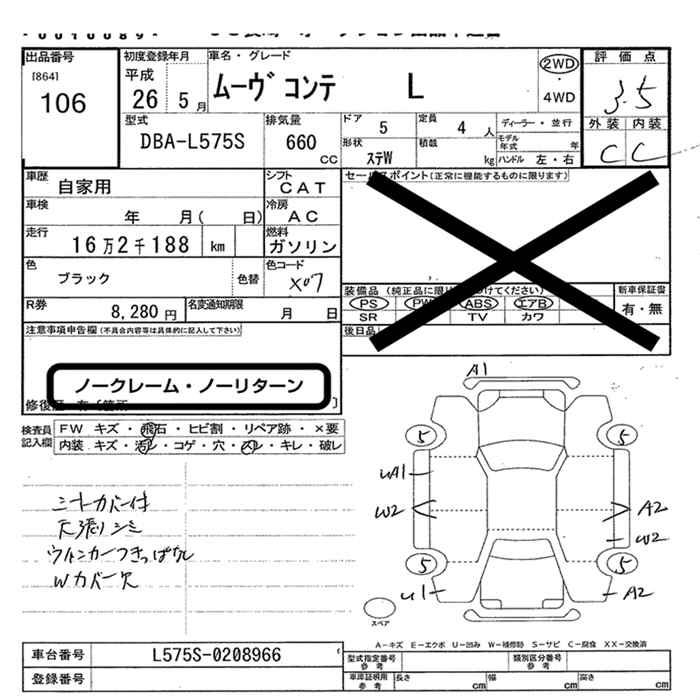 出品番号 初度登録年月 車名・グレード 評価点
[864] 平成 2WD
106 26 5月 ムーヴ コンテ L ・ 3.5
4WD
型式 排気量 ドア 定員 ディーラー・並行 外装 内装
DBA-L575S 660 cc 5 4人 モデル年式 年 C C
形状 積載
ステW kg ハンドル 左・右
車歴 シフト セールスポイント(正常に機能するものに限ります)
自家用 CAT
車検 冷房
年 月( 日) AC
走行 燃料
16万2千188 km ガソリン
色 色コード
ブラック 色替 X07 装備品 新車保証書
PS PW ABS エアB 有・無
R券 名変通知期限 SR TV カワ
8,280円 月 日 後日品
注意事項申告欄(不具合内容等は具体的に記入して下さい)
ノークレーム・ノーリターン
修復歴
検査員記入欄 FW キズ・飛石・ヒビ割・リペア跡・×要
内装 キズ・汚レ・コゲ・穴・スレ・キレ・破レ
A1
5 5
UA1
W2 A2
W2
5 5
U1 A2
シートカバー付
天張りシミ
ウインカーつきっぱなし
Wカバー欠
スペア
A-キズ E-エクボ U-凹み W-補修跡 S-サビ C-腐食 XX-交換済
車台番号 L575S-0208966 型式指定番号 参考 類別区分番号 参考
登録番号 車庫証明用 参考 長さ cm 幅 cm 高さ cm